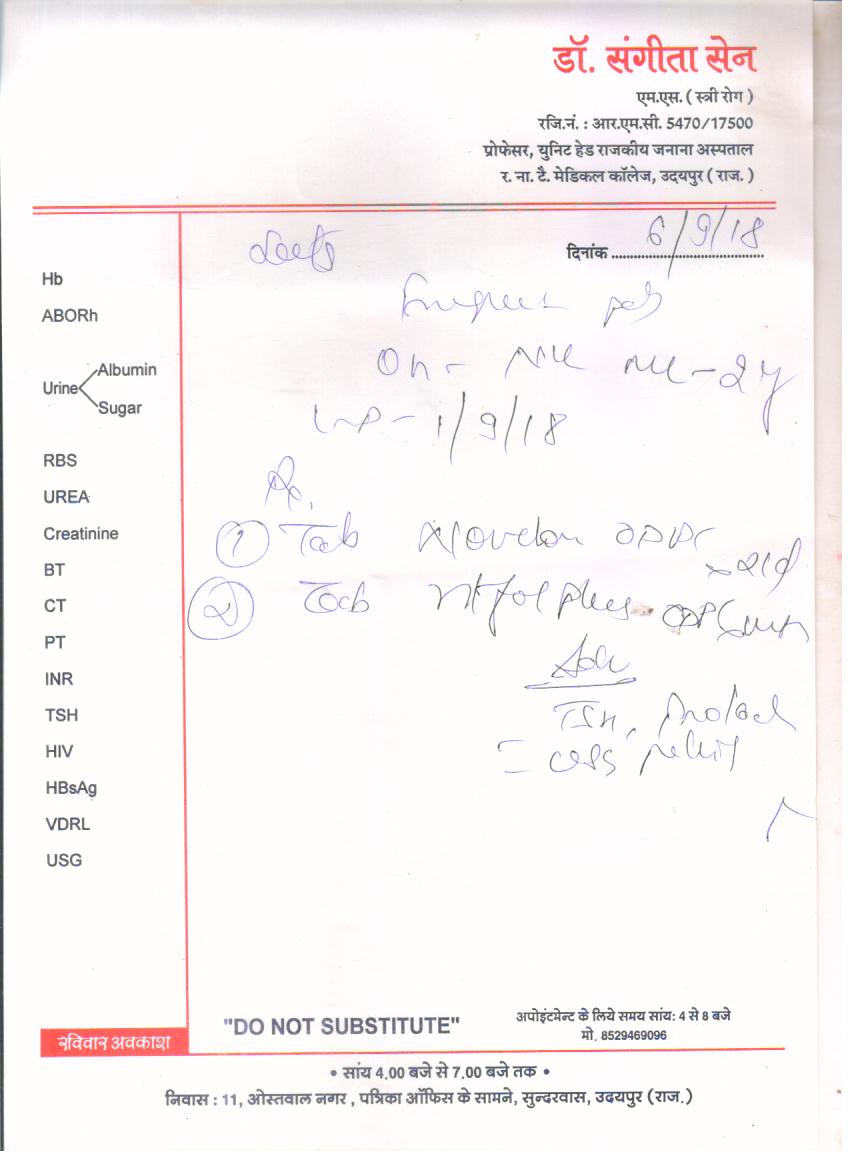 डॉ. संगीता सेन
एम.एस. ( स्त्री रोग )
रजि.नं. : आर.एम.सी. 5470/17500
प्रोफेसर, युनिट हेड राजकीय जनाना अस्पताल
र. ना. टै. मेडिकल कॉलेज, उदयपुर ( राज. )
दिनांक 6/9/18
Hb
ABORh
Urine Albumin
Sugar
RBS
UREA
Creatinine
BT
CT
PT
INR
TSH
HIV
HBsAg
VDRL
USG
Oh -
- 1/9/18
Rx,
1 Tab Novelon
x 21d
2 Tab plus
Adv
TSH,
"DO NOT SUBSTITUTE"
अपोइंटमेन्ट के लिये समय सांय: 4 से 8 बजे
मो. 8529469096
रविवार अवकाश
• सांय 4.00 बजे से 7.00 बजे तक •
निवास : 11, ओस्तवाल नगर , पत्रिका ऑफिस के सामने, सुन्दरवास, उदयपुर (राज.)